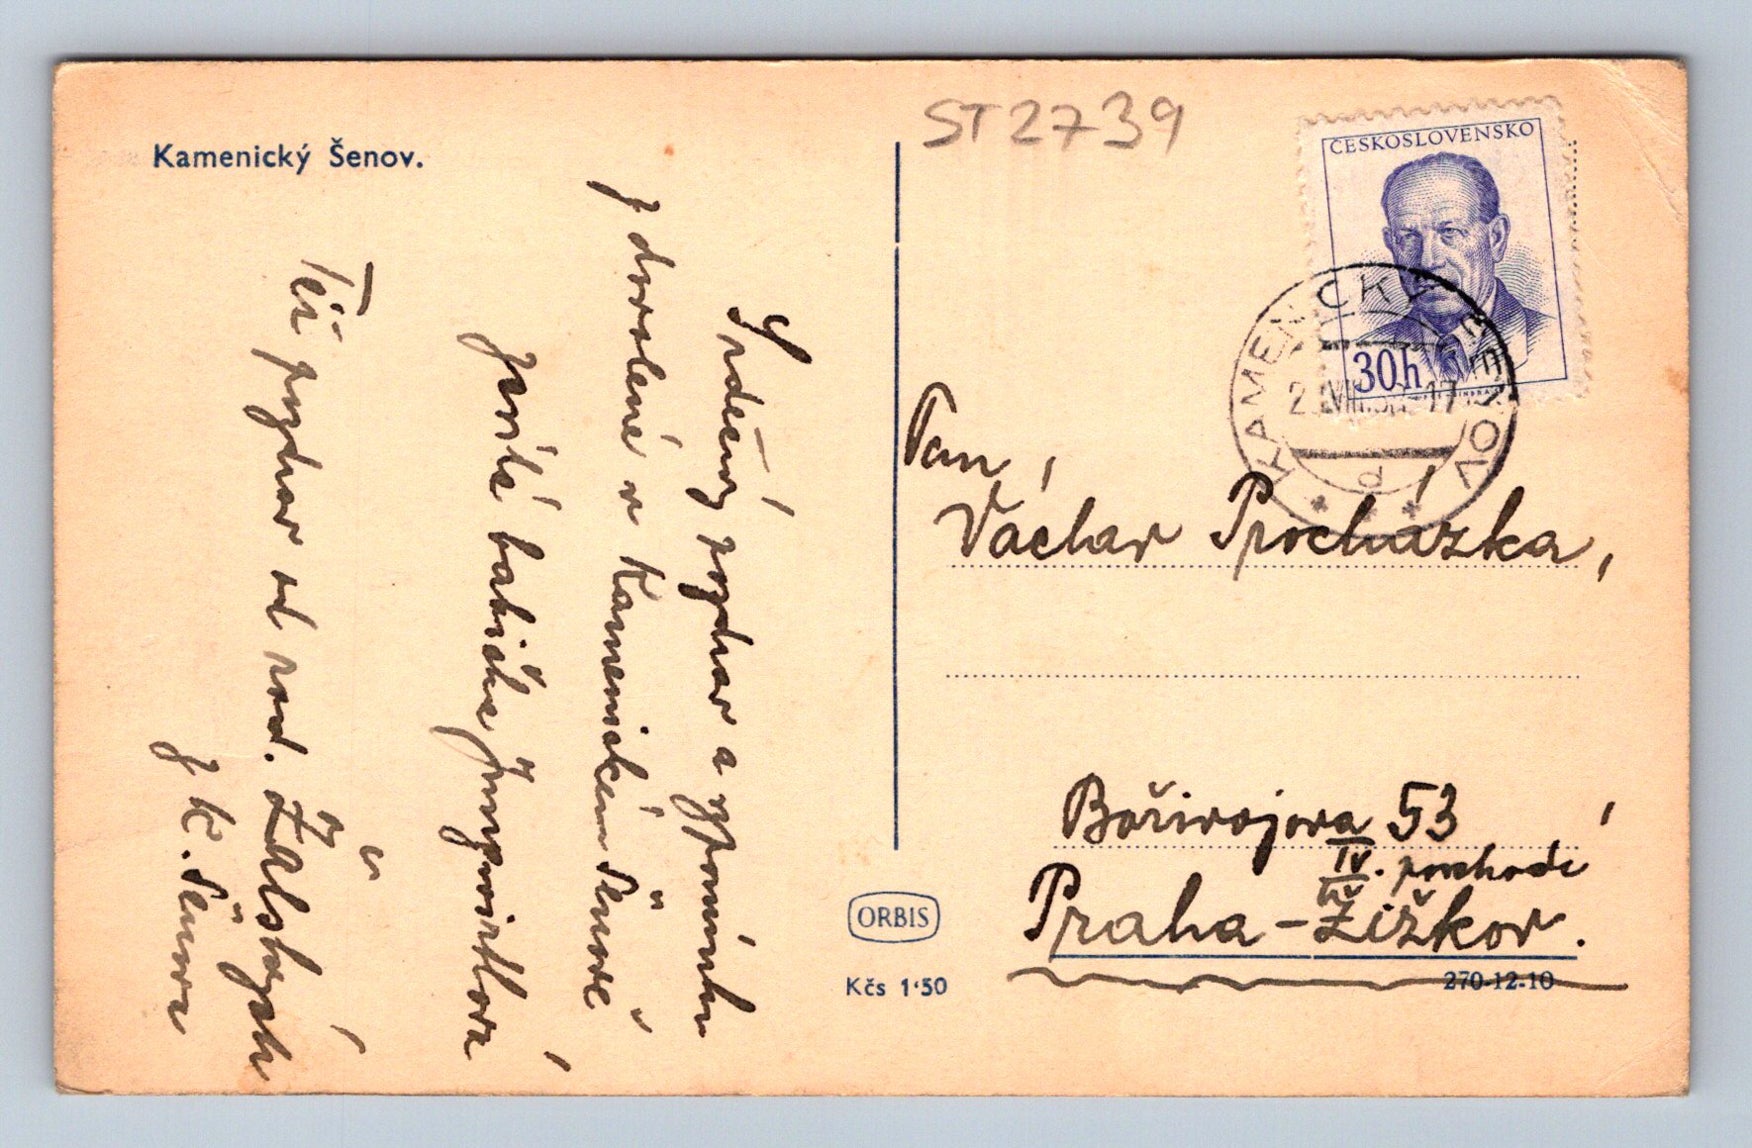 Kamenický Šenov.
ST2739
ČESKOSLOVENSKO
30h
KAMENICKÝ ŠENOV
d
Srdečný pozdrav a vzpomínku
z dovolené v Kamenickém Šenově
posílá babička
Též pozdrav od rod.
z K. Šenova
Pan
Václav Procházka,
Bořivojova 53
IV. poschodí
Praha - Žižkov.
ORBIS
Kčs 1·50
270-12-10